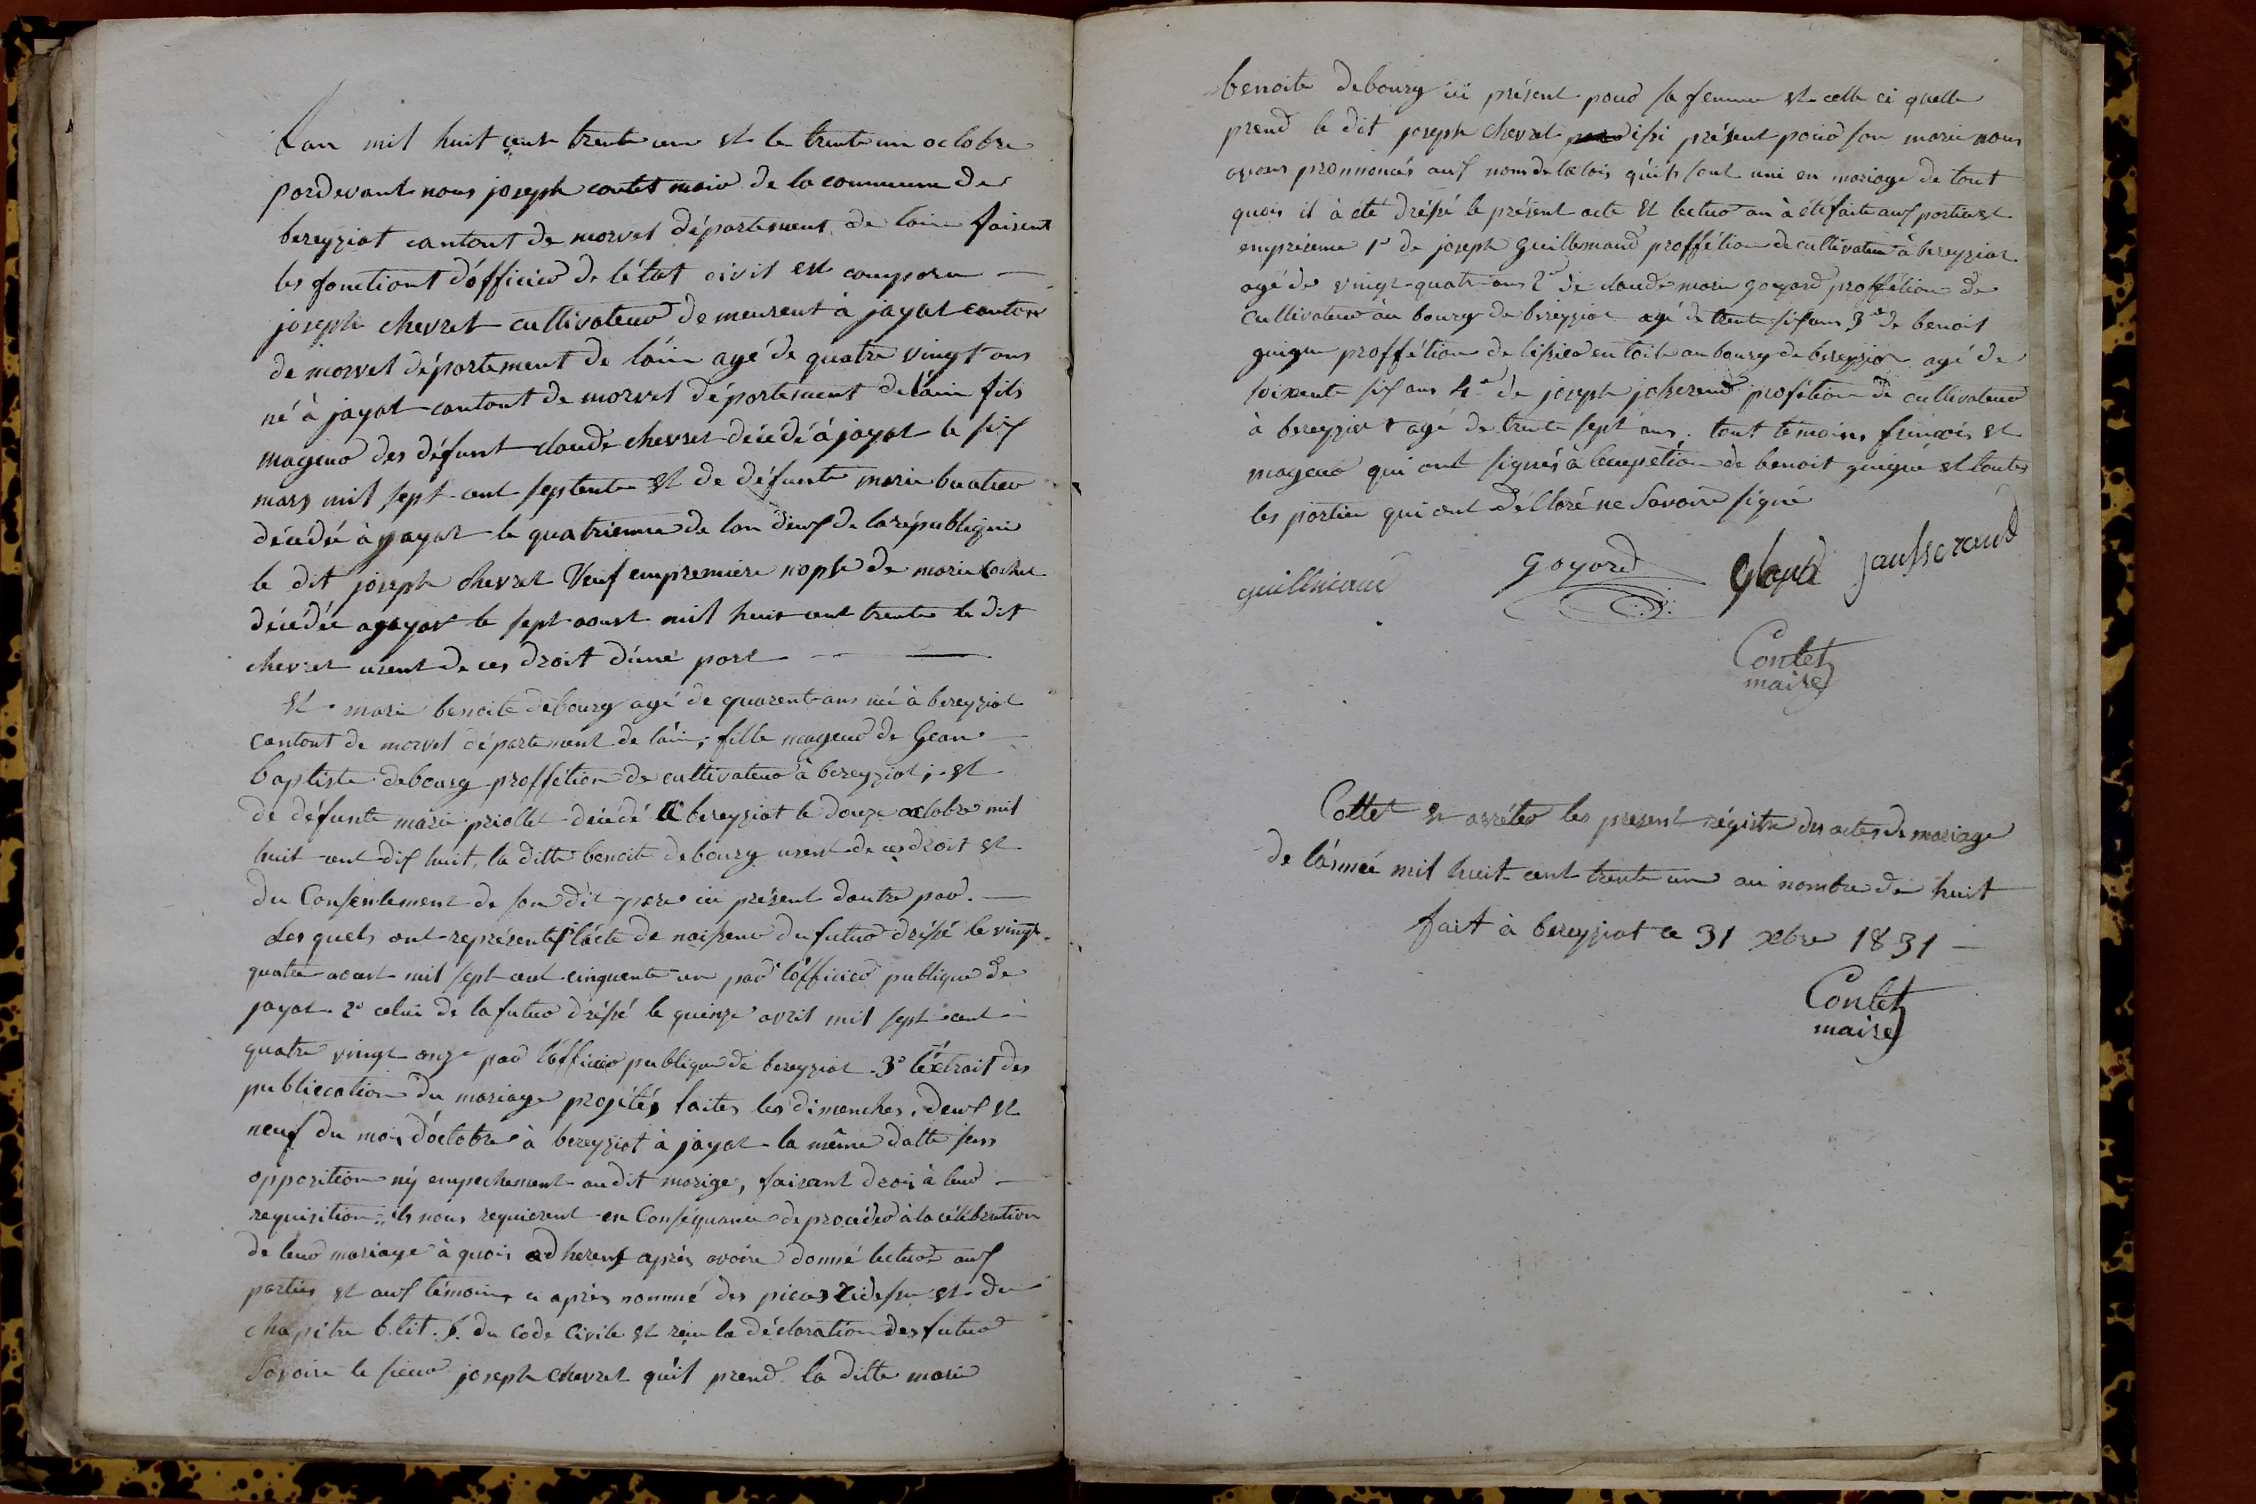 Lan mil huit cent trente un et le trente un octobre
pardevant nous joseph contet maire de la commune de
bereyziat cantont de morvel département de lain faisent
les fonctiont dófficier de létat civil est comparu
joseph chevret cultivateur demeurent à jayat canton
de morvel département de láin agé de quatre vingt ans
né à jayat cantont de morvel département de láin fils
mageur des défunt claude chevret décédé à jayat le six
mars mil sept cent septente et de défunte marie buatier
décédé à jayat le quatrieme de lan deux de la républiqui
le dit joseph chevret Veuf empremiere nopse de marie cochet
décédée a jayat le sept aoust mil huit cent trente le dit
chevret usent de ces droit dúne part
et marie benoite debourg agé de quarent ans né à bereyziat
cantont de morvel département de láin; fille mageur de Gean
baptiste debourg proffétion de cultivateur à bereyziat; et
de défunte marie priollet décédé à bereyziat le douze octobre mil
huit cent dix huit, la ditte benoite debourg usent de ces droit et
du Consentement de son dit pere ici présent dautre par.
Les quels ont représentés lácte de naissence du futur dréssé le vingt
quatre aoust mil sept cent cinquente un par lófficier publique de
jayat 2° celui de la futur dréssé le quinze avril mil sept cent
quatre vingt onze par lófficier publique de bereyziat 3° léxtrait des
publiccation du mariage projétés faites les dimenches deux et
neuf du mois dóctobre à bereyziat à jayat la même datte sens
opposition ný empechement au dit marige, faisant droi à leur
requisition; ils nous requierent en Conséquance de procéder à la célébration
de leur mariage à quois adherent après avoire donné lectur aux
parties et aux témoins ci après nommé des pieces cidessu et du
chapitre 6. tit. 5. du Code Civile et reçu la déclaration des futur
Savoire le sieur joseph chevret quíl prend la ditte marie
benoite debourg ici présent pour sa femme et celle ci quelle
prend le dit joseph chevret issi présent pour son marie nous
avons prononcés aux nom de la lois quíls sont uni en mariage de tout
quois il à été dréssé le présent acte et lectur an à été faite aux partie et
emprésence 1° de joseph Guillemaud proffétion de cultivateur à bereyziat
agé de vingt quatre ans 2° de claude marie goyard proffétion de
Cultivateur àu bourg de bereyziat agé de trente six ans 3° de benoit
guigue proffétion de tissier en toile au bourg de bereyziat agé de
soixente six ans 4° de joseph joserend profétion de cultivateur
à bereyziat agé de trente sept ans. tout temoins francois et
mageur qui ont signés à lecepétion de benoit guigue et toutes
les partier qui ont délloré ne Savoire signé
guillemaud goyard jausserand
Contet
maire
Collet et arréter les present régistre des actes de mariage
de lánnée mil huit cent trente un au nombre de huit
fait à bereyziat ce 31 xbre 1831
Contet
maire